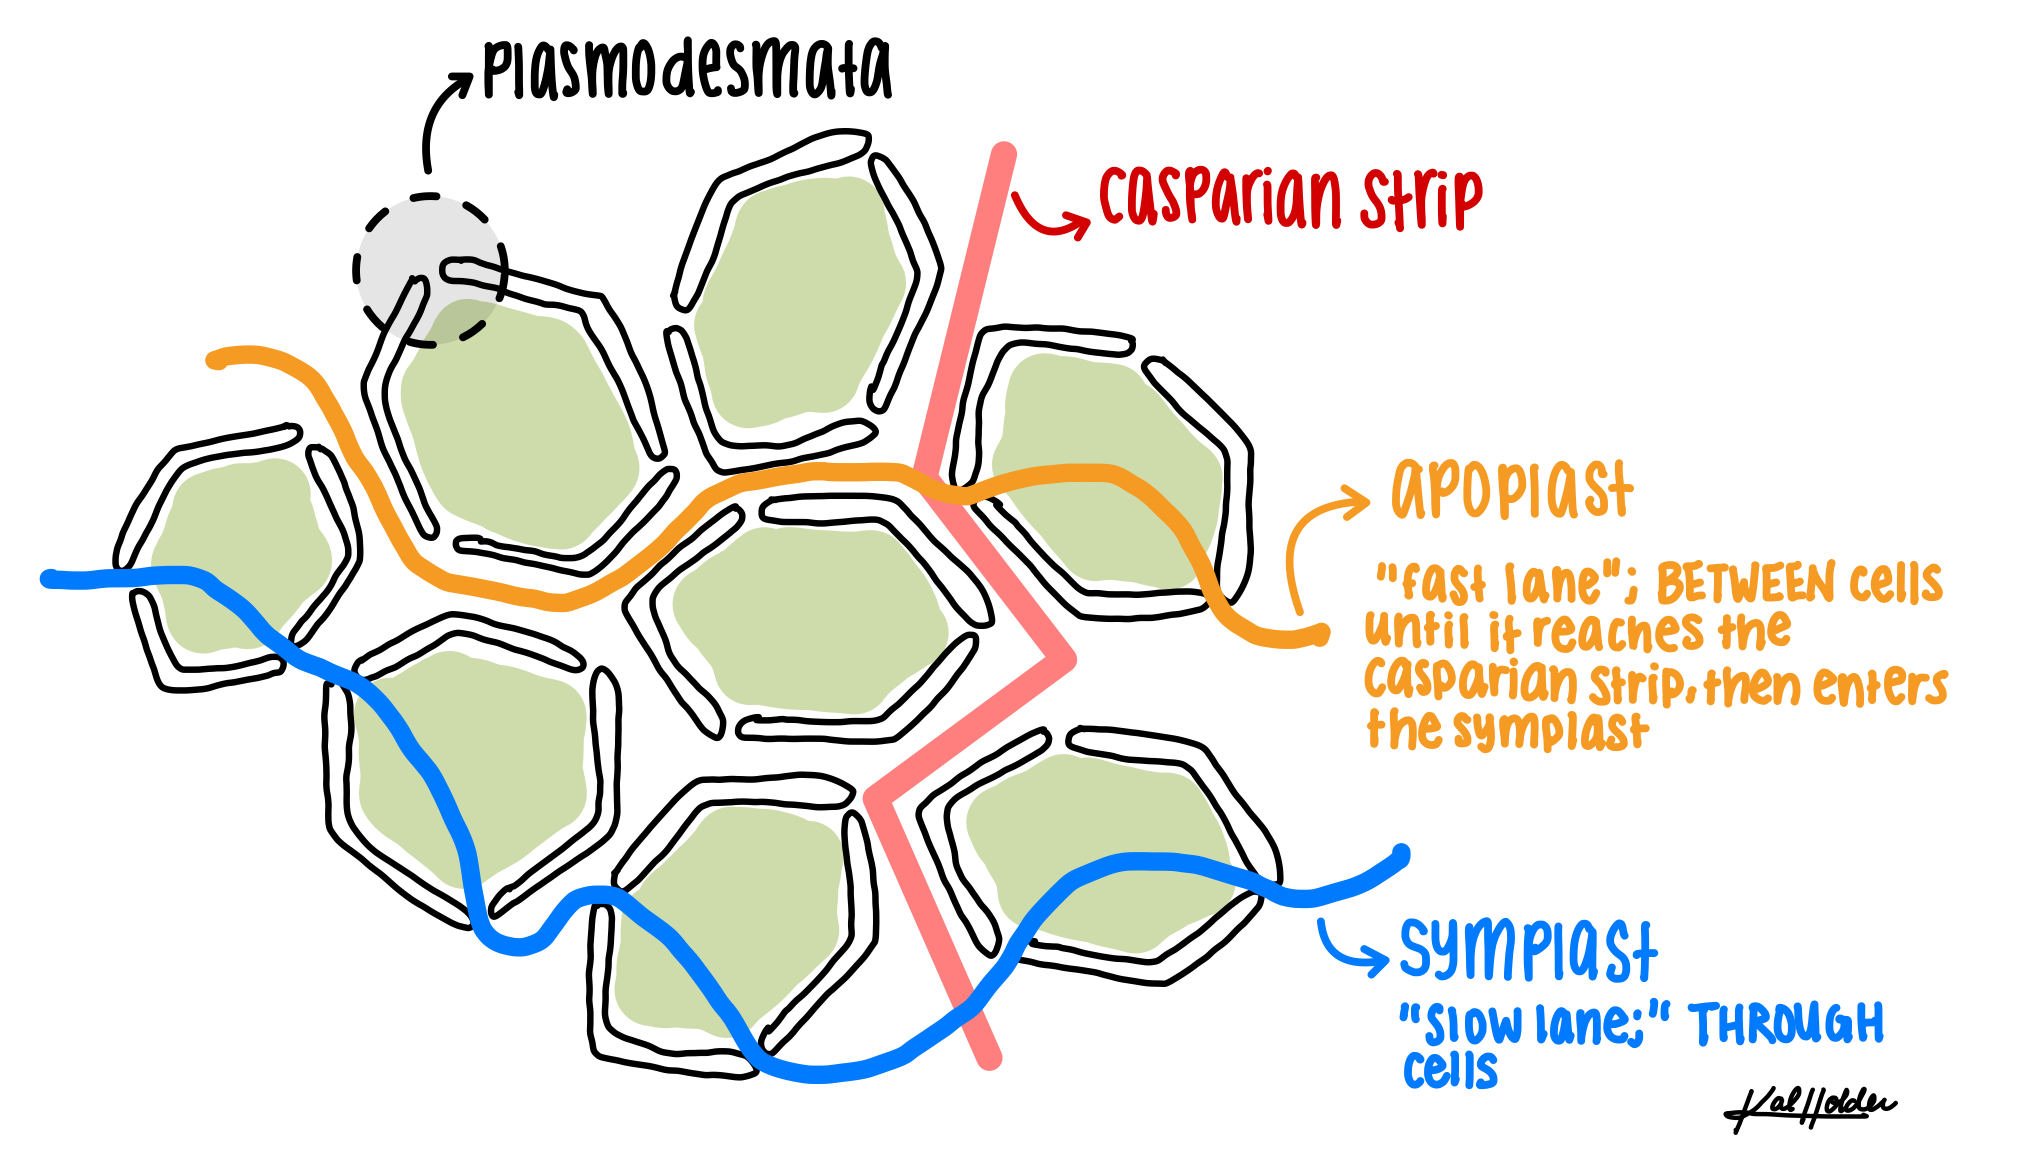 Plasmodesmata
Casparian strip
apoplast
"fast lane"; BETWEEN cells
until it reaches the
casparian strip, then enters
the symplast
symplast
"slow lane;" THROUGH
cells
Kal Holder